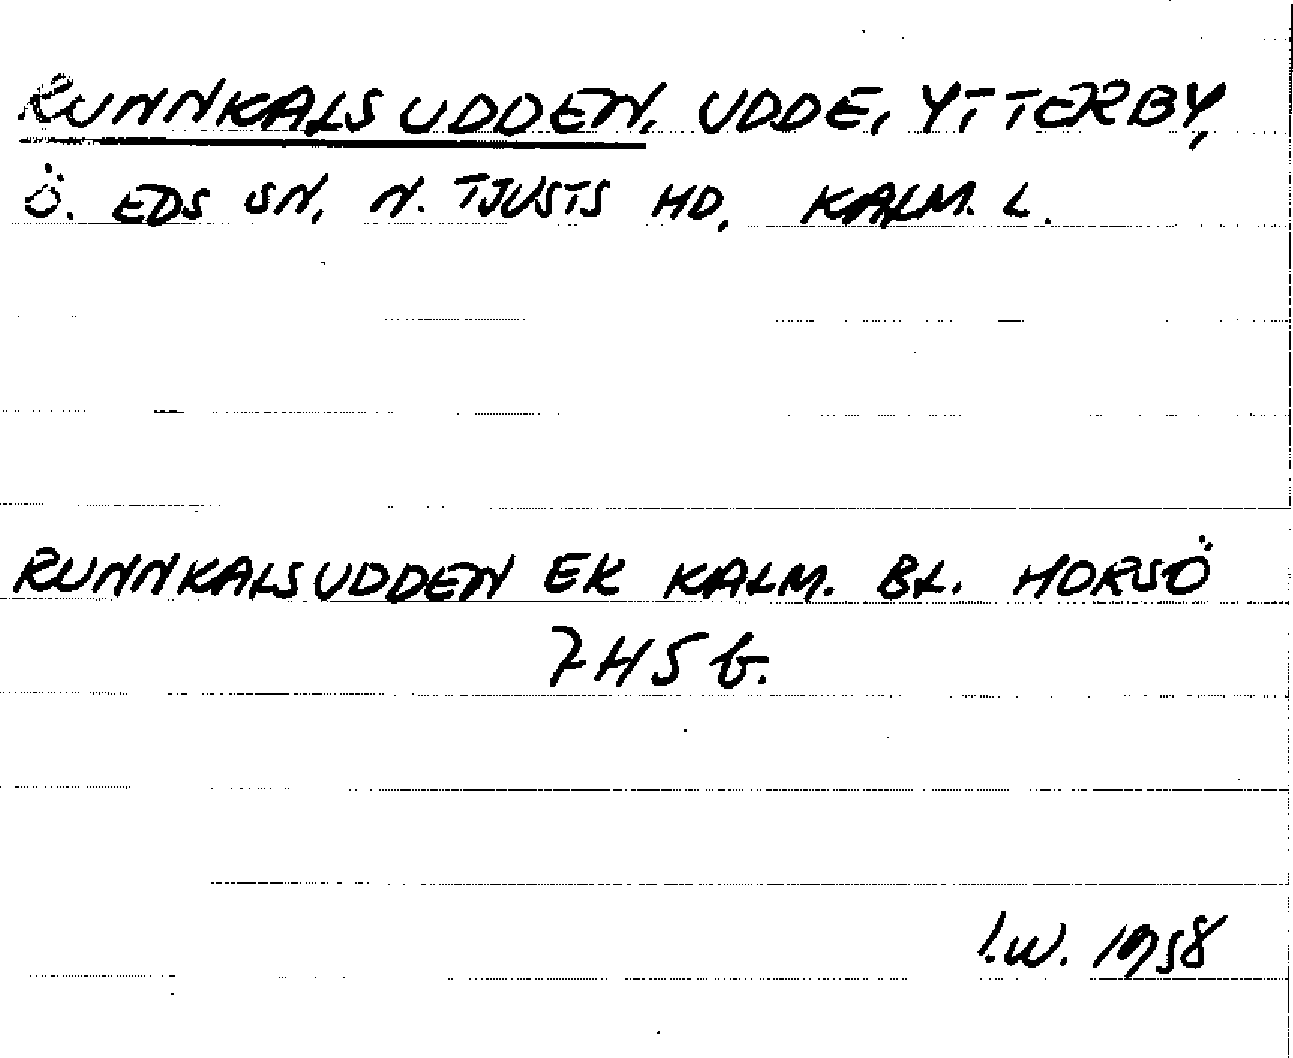 RUNNKALSUDDEN, UDDE, YTTERBY,
Ö. EDS SN, N. TJUSTS HD, KALM. L.
RUNNKALSUDDEN EK KALM. BL. HORSÖ
7H5b.
I.W. 1958